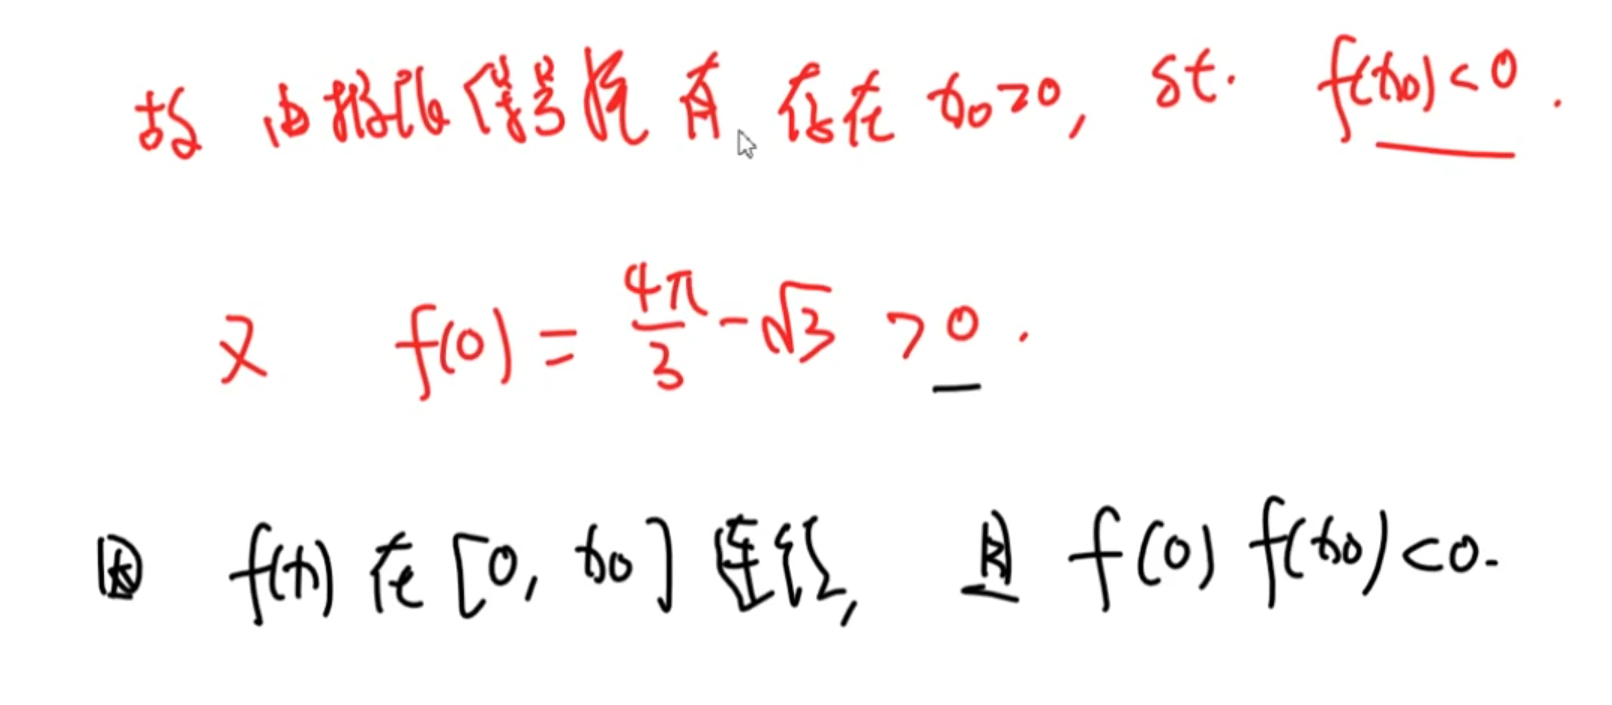 故 由极限保号性 有 存在 x₀>0, st. f(x₀)<0.
又 f(0) = 4π/3 - √3 >0.
因 f(x) 在 [0, x₀] 连续, 且 f(0) f(x₀)<0.